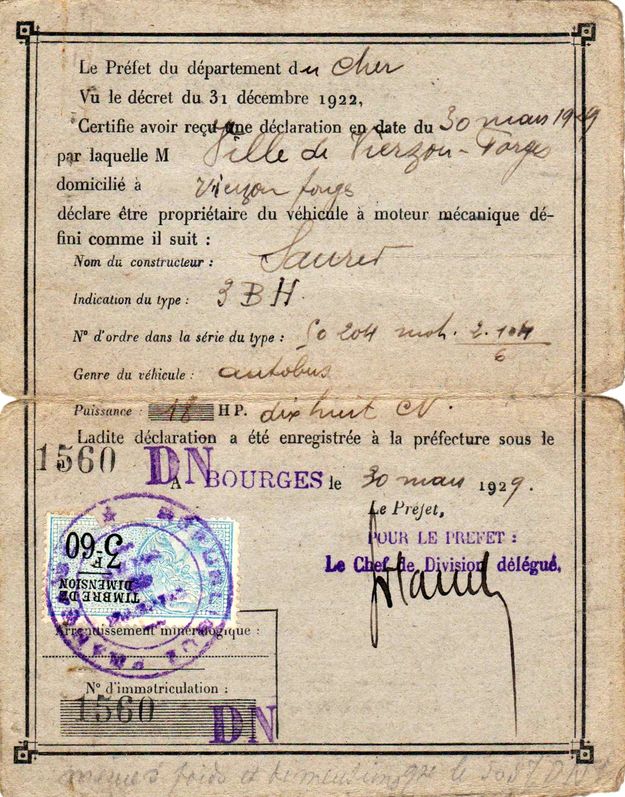 Le Préfet du département du Cher
Vu le décret du 31 décembre 1922,
Certifie avoir reçu une déclaration en date du 30 mars 1929
par laquelle M Ville de Vierzon-Forges
domicilié à Vierzon forges
déclare être propriétaire du véhicule à moteur mécanique dé-
fini comme il suit :
Nom du constructeur : Saurer
Indication du type : 3BH
N° d'ordre dans la série du type : 50 204 mot. 2.104/6
Genre du véhicule : autobus
Puissance : 18 HP. dix huit CV.
Ladite déclaration a été enregistrée à la préfecture sous le
n° 1560 DN
A BOURGES le 30 mars 1929.
Le Préfet,
POUR LE PREFET :
Le Chef de Division délégué,
3F60
TIMBRE DE
DIMENSION
REPUBLIQUE FRANÇAISE
Arrondissement minéralogique :
N° d'immatriculation :
1560 DN
mêmes poids et dimensions que le 5087 DN